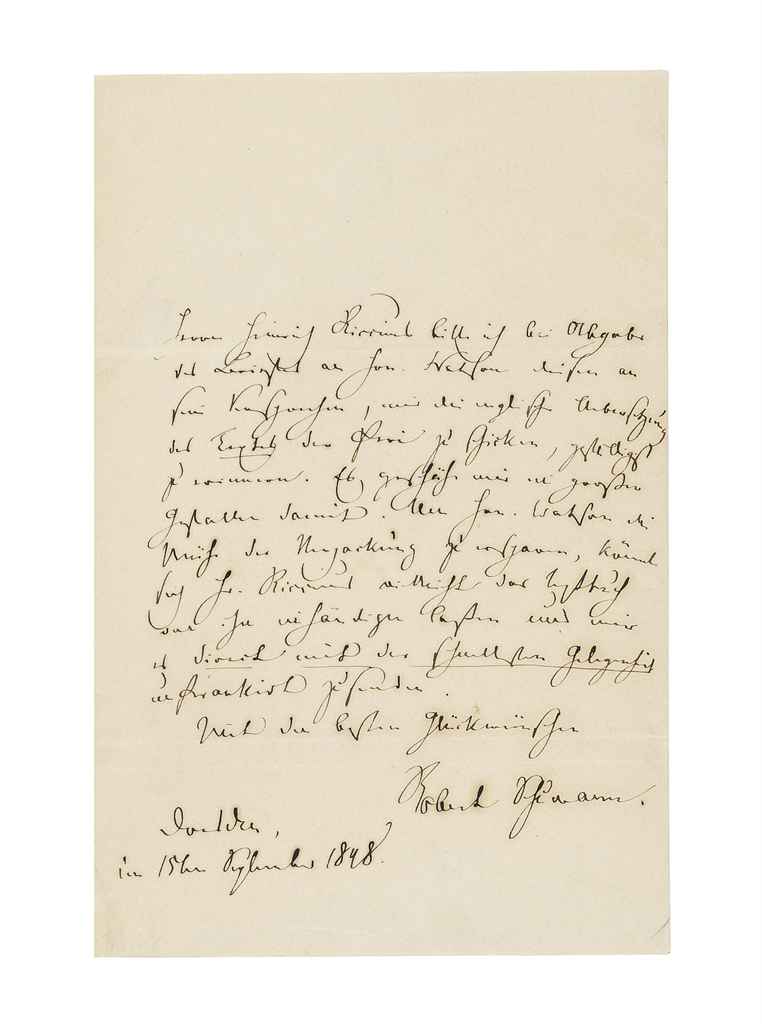 Herrn Heinrich Riccius bitte ich bei Abgabe
des an Hrn. Watson diesen an
sein Versprechen, mir die englische Uebersetzung
des Textes der Peri zu schicken, gefälligst
zu erinnern. Es geschähe mir ein großer
Gefallen damit. Um Hrn. Watson die
Mühe der Verpackung zu ersparen, könnte
sich Hr. Riccius vielleicht das Textbuch
von ihm einhändigen laßen und mir
es direct mit der schnellsten Gelegenheit
unfrankirt zusenden.
Mit den besten Glückwünschen
Robert Schumann.
Dresden,
den 15ten September 1848.